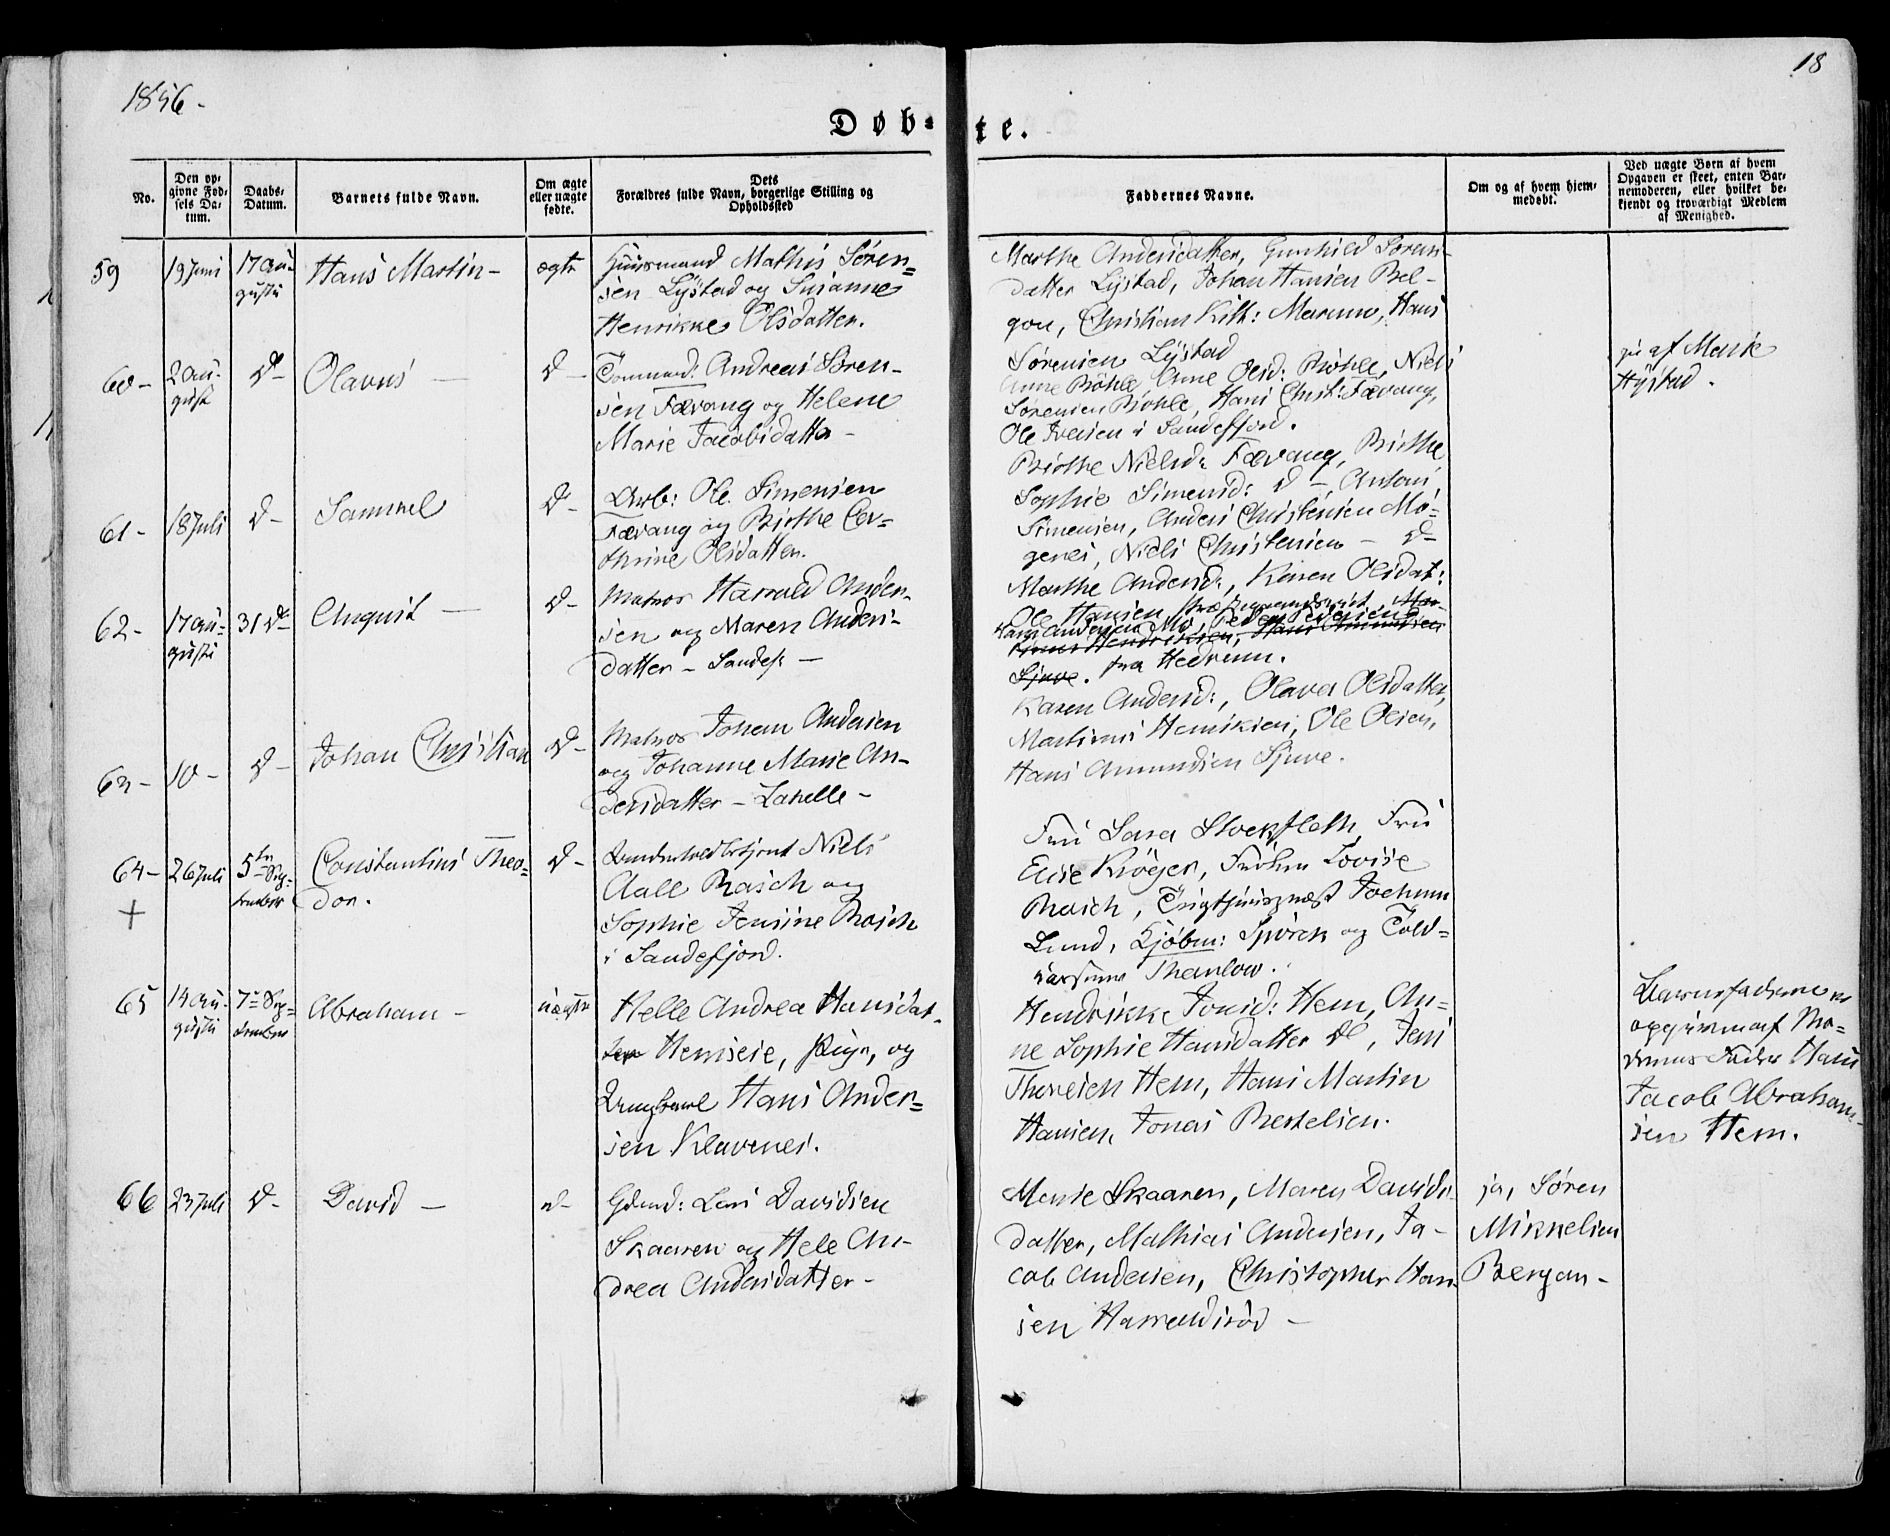 1856.
18
Døb-
te.
No.
Den op-
givne Fød-
sels Da-
tum.
Daabs-
Datum.
Barnets fulde Navn.
Om ægte
eller uægte
fødte.
Dets
Forældres fulde Navn, borgerlige Stilling og
Opholdssted
Faddernes Navne.
Om og af hvem hjem-
medøbt.
Ved uægte Børn af hvem
Opgaven er skeet, enten Bar-
nemoderen, eller hvilket be-
kjendt og troværdigt Medlem
af Menighed.
59
19 Juni
17 Au-
gusti
Hans Martin -
ægte
Huusmand Mathis Søren=
sen Lystad og Susanne
Henrikke Olsdatter.
Marthe Andersdatter, Gunhild Sørens-
datter Lystad, Johan Hansen Bel-
gou, Christian Hans
Sørensen Lystad
60 -
2 Au-
gust
d -
Olavus -
d -
Tømmermd: Andreas Søren-
sen Færvang og Helene
Marie Jacobsdatter -
Anne Bøhle, Anne Olsd: Bøhle, Niels
Sørensen Bøhle, Hans Christ: Færvang,
Ole Iversen i Sandefjord.
af Marie
Hystad.
61 -
18 Juli
d -
Samuel
d -
Arb: Ole Simensen
Færvang og Birthe Ca-
thrine Olsdatter.
Birthe Nielsd: Færvang, Birthe
Sophie Simensd: d -, Anton
Simensen, Anders Christensen Mo-
genes, Niels Christensen - d -
62 -
17 Au-
gusti
31 d -
August -
d -
Matros Harrald Ander-
sen og Maren Anders-
datter - Sandefj -
Marthe Andersd:, Karen Olsdat:
Ole Hansen
Hans Andersen Mo, Peder Pedersen
Hendriksen, Hans Amundsen
Sjuve. fra Hedrum.
63 -
10 -
d -
Johan Christian
d -
Matros Johan Andersen
og Johanne Marie An-
dersdatter - Lahelle -
Karen Andersd:, Olava Olsdatter,
Martinus Henriksen, Ole Olsen,
Hans Amundsen Sjuve.
64 -
+
26 Juli
5te Sep-
tember
Constantius Theo=
dor.
d -
Undertoldbetjent Niels
Aall Rasch og
Sophie Jensine Rasch
i Sandefjord.
Fru Sara Stockfleth, Fru
Elise Krøger, Frøken Lovise
Rasch, Jochum
Lund, Kjøbm: Spørck og Told-
Thaulow.
65
14 Au-
gusti
7de Sep-
tember
Abraham -
uægte
Helle Andrea Hansdat-
ter Hemseie, Pige, og
Ungkarl Hans Ander=
sen Klavenes.
Hendrikke Jonsd: Hem, An-
ne Sophie Hansdatter d, Jens
Thoresen Hem, Hans Martin
Hansen, Jonas Bertelsen.
Barnefaderen er
opgiven af Mo-
derens Fader Hans
Jacob Abraham-
sen Hem.
66
23 Juli
d -
David -
d -
Gdmd: Lars Davidsen
Skaaren og Hele An-
drea Andersdatter -
Marie Skaaren, Maren Davids-
datter, Mathias Andersen, Ja-
cob Andersen, Christopher Han-
sen Harraldsrød -
ja, Søren
Mikkelsen
Bergan -